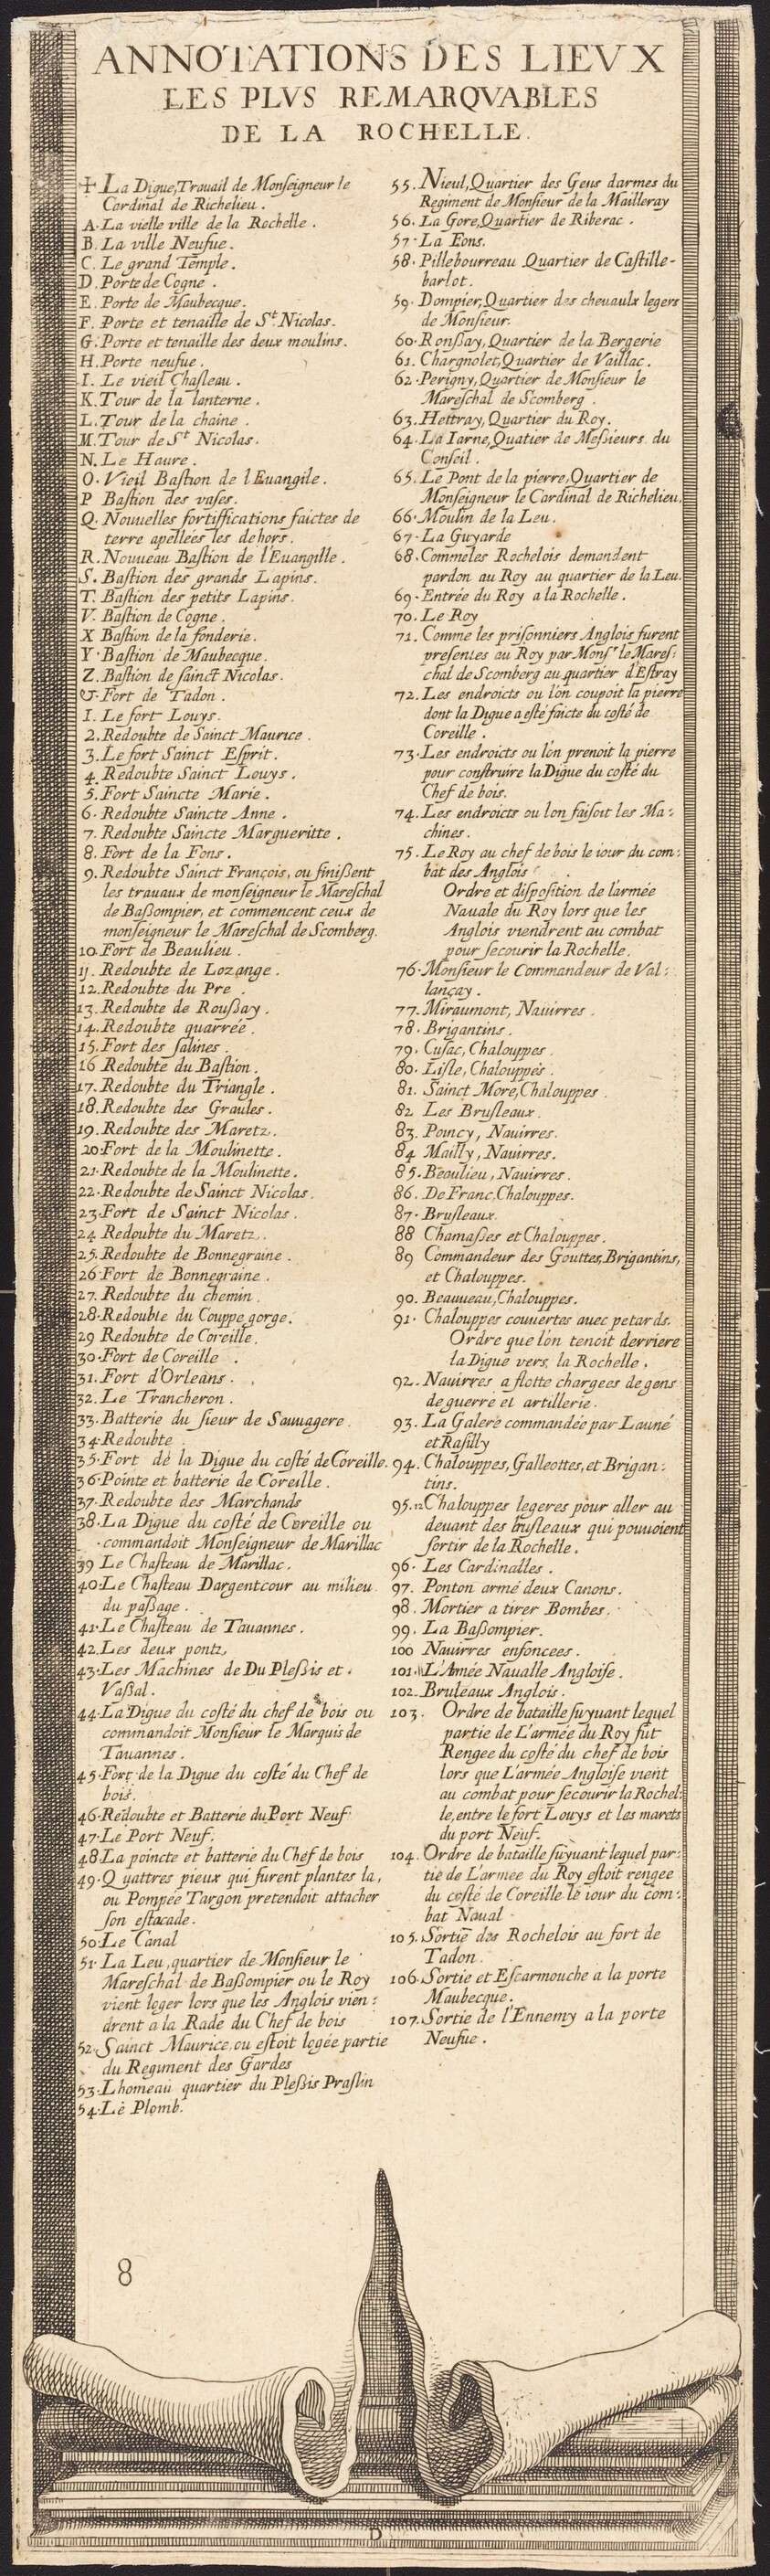 ANNOTATIONS DES LIEVX
LES PLVS REMARQVABLES
DE LA ROCHELLE.
✢ La Digue, Trauail de Monſeigneur le
Cardinal de Richelieu.
A. La vielle ville de la Rochelle.
B. La ville Neufue.
C. Le grand Temple.
D. Porte de Cogne.
E. Porte de Maubecque.
F. Porte et tenaille de St. Nicolas.
G. Porte et tenaille des deux moulins.
H. Porte neufue.
I. Le vieil Chaſteau.
K. Tour de la lanterne.
L. Tour de la chaine.
M. Tour de St Nicolas.
N. Le Haure.
O. Vieil Baſtion de l'Euangile.
P Baſtion des vaſes.
Q. Nouuelles fortiffications faictes de
terre apellées les dehors.
R. Nouueau Baſtion de l'Euangille.
S. Baſtion des grands Lapins.
T. Baſtion des petits Lapins.
V. Baſtion de Cogne.
X Baſtion de la fonderie.
Y Baſtion de Maubecque.
Z. Baſtion de ſainct Nicolas.
&. Fort de Tadon.
1. Le fort Louys.
2. Redoubte de Sainct Maurice.
3. Le fort Sainct Eſprit.
4. Redoubte Sainct Louys.
5. Fort Saincte Marie.
6. Redoubte Saincte Anne.
7. Redoubte Saincte Margueritte.
8. Fort de la Fons.
9. Redoubte Sainct François, ou finißent
les trauaux de monſeigneur le Mareſchal
de Baßompier, et commencent ceux de
monſeigneur le Mareſchal de Scomberg.
10. Fort de Beaulieu.
11. Redoubte de Lozange.
12. Redoubte du Pre.
13. Redoubte de Roußay.
14. Redoubte quarrée.
15. Fort des ſalines.
16 Redoubte du Baſtion.
17. Redoubte du Triangle.
18. Redoubte des Graules.
19. Redoubte des Maretz.
20 Fort de la Moulinette.
21. Redoubte de la Moulinette.
22. Redoubte de Sainct Nicolas.
23. Fort de Sainct Nicolas.
24 Redoubte du Maretz.
25. Redoubte de Bonnegraine.
26 Fort de Bonnegraine.
27. Redoubte du chemin.
28. Redoubte du Couppe gorge.
29 Redoubte de Coreille.
30. Fort de Coreille.
31. Fort d'Orleans.
32. Le Trancheron.
33. Batterie du ſieur de Sauuagere.
34. Redoubte
35. Fort de la Digue du coſté de Coreille.
36. Pointe et batterie de Coreille.
37. Redoubte des Marchands
38. La Digue du coſté de Coreille ou
commandoit Monſeigneur de Marillac
39 Le Chaſteau de Marillac.
40. Le Chaſteau Dargentcour au milieu
du paßage.
41. Le Chaſteau de Tauannes.
42. Les deux pontz,
43. Les Machines de Du Pleßis et
Vaßal.
44. La Digue du coſté du chef de bois ou
commandoit Monſieur le Marquis de
Tauannes.
45. Fort de la Digue du coſté du Chef de
bois.
46. Redoubte et Batterie du Port Neuf
47. Le Port Neuf.
48 La poincte et batterie du Chef de bois
49. Quattres pieux qui furent plantes la,
ou Pompée Targon pretendoit attacher
ſon eſtacade.
50. Le Canal
51. La Leu, quartier de Monſieur le
Mareſchal de Baßompier ou le Roy
vient loger lors que les Anglois vien:
drent a la Rade du Chef de bois
52. Sainct Maurice, ou eſtoit logée partie
du Regiment des Gardes
53. Lhomeau quartier du Pleßis Praſlin
54. Le Plomb.
55. Nieul, Quartier des Gens darmes du
Regiment de Monſieur de la Mailleray
56. La Gore, Quartier de Riberac.
57. La Fons.
58. Pillebourreau Quartier de Caſtille-
barlot.
59. Dompier, Quartier des cheuaulx legers
de Monſieur.
60. Ronßay, Quartier de la Bergerie
61. Chargnolet, Quartier de Vaillac.
62. Perigny, Quartier de Monſieur le
Mareſchal de Scomberg.
63. Hettray, Quartier du Roy.
64. La Iarne, Quatier de Meßieurs du
Conſeil.
65. Le Pont de la pierre, Quartier de
Monſeigneur le Cardinal de Richelieu.
66. Moulin de la Leu.
67. La Guyarde
68. Comme les Rochelois demandent
pardon au Roy au quartier de la Leu.
69. Entrée du Roy a la Rochelle.
70. Le Roy
71. Comme les priſonniers Anglois furent
preſentes au Roy par Monſr. le Mareſ-
chal de Scomberg au quartier d'Eſtray
72. Les endroicts ou l'on coupoit la pierre
dont la Digue a eſté faicte du coſté de
Coreille.
73. Les endroicts ou l'on prenoit la pierre
pour conſtruire la Digue du coſté du
Chef de bois.
74. Les endroicts ou lon faiſoit les Ma:
chines.
75. Le Roy au chef de bois le iour du com:
bat des Anglois
Ordre et diſpoſition de l'armée
Nauale du Roy lors que les
Anglois viendrent au combat
pour ſecourir la Rochelle.
76. Monſieur le Commandeur de Val:
lançay.
77. Miraumont, Nauirres.
78. Brigantins.
79. Cuſac, Chalouppes.
80. Liſle, Chalouppes.
81. Sainct More, Chalouppes.
82 Les Bruſleaux.
83. Poincy, Nauirres.
84 Mailly, Nauirres.
85. Beaulieu, Nauirres.
86. De Franc, Chalouppes.
87. Bruſleaux.
88 Chamaßes et Chalouppes.
89 Commandeur des Gouttes, Brigantins,
et Chalouppes.
90. Beauueau, Chalouppes.
91. Chalouppes couuertes auec petards.
Ordre que l'on tenoit derriere
la Digue vers, la Rochelle.
92. Nauirres a flotte chargees de gens
de guerre et artillerie.
93. La Galere commandée par Launé
et Raſilly
94. Chalouppes, Galleottes, et Brigan:
tins.
95. 12 Chalouppes legeres pour aller au
deuant des bruſleaux qui pouuoient
ſortir de la Rochelle.
96. Les Cardinalles.
97. Ponton armé deux Canons.
98. Mortier a tirer Bombes.
99. La Baßompier.
100 Nauirres enfoncees.
101. L'Amée Naualle Angloiſe.
102. Bruleaux Anglois.
103. Ordre de bataille ſuyuant lequel
partie de L'armée du Roy fut
Rengee du coſté du chef de bois
lors que L'armée Angloiſe vient
au combat pour ſecourir la Rochel:
le, entre le fort Louys et les marets
du port Neuf.
104. Ordre de bataille ſuyuant lequel par:
tie de L'armee du Roy eſtoit rengee
du coſté de Coreille le iour du com:
bat Naual
105. Sortie des Rochelois au fort de
Tadon.
106. Sortie et Eſcarmouche a la porte
Maubecque.
107. Sortie de l'Ennemy a la porte
Neufue.
8
D